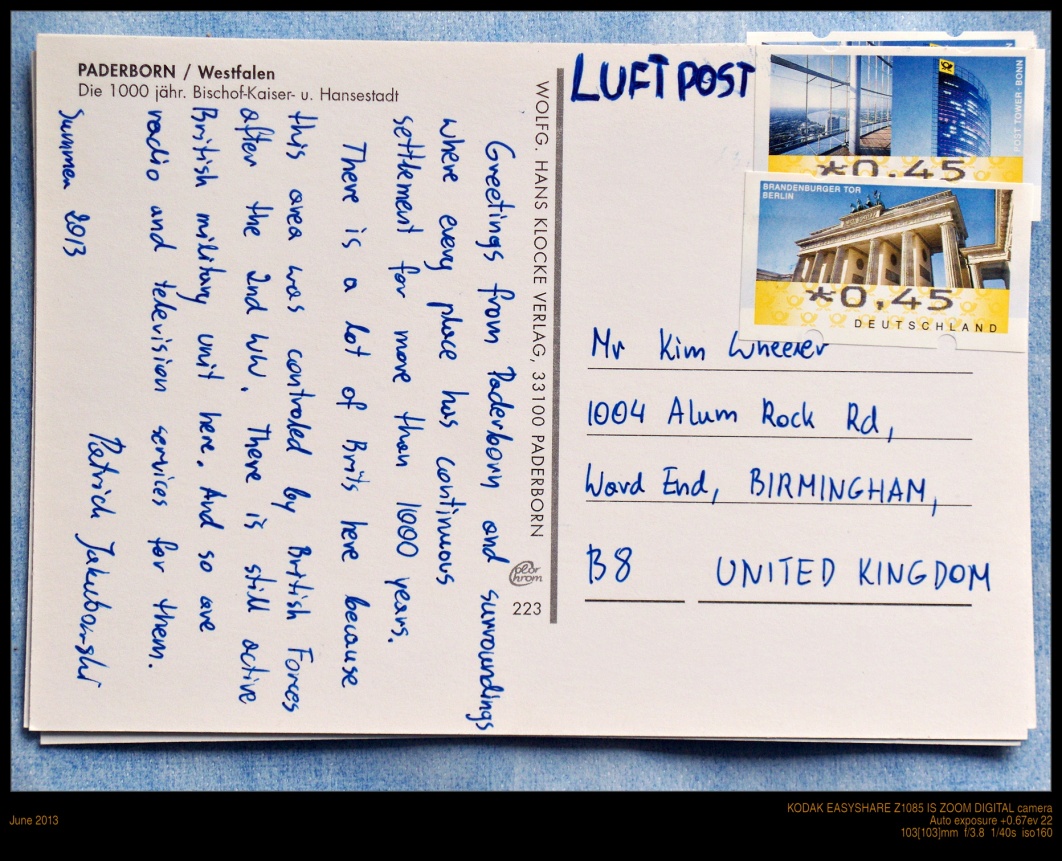 PADERBORN / Westfalen
Die 1000 jähr. Bischof-Kaiser- u. Hansestadt
Greetings from Paderborn and surroundings
where every place has continuous
settlement for more than 1000 years.
There is a lot of Brits here because
this area was controled by British Forces
after the 2nd WW. There is still active
British military unit here. And so are
radio and television services for them.
Summer 2013
Patrick Jakubowski
WOLFG. HANS KLOCKE VERLAG, 33100 PADERBORN
223
LUFTPOST
POST TOWER · BONN
*0,45
BRANDENBURGER TOR
BERLIN
*0,45
DEUTSCHLAND
Mr Kim Wheeler
1004 Alum Rock Rd,
Ward End, BIRMINGHAM,
B8 UNITED KINGDOM
June 2013
KODAK EASYSHARE Z1085 IS ZOOM DIGITAL camera
Auto exposure +0.67ev 22
103[103]mm f/3.8 1/40s iso160